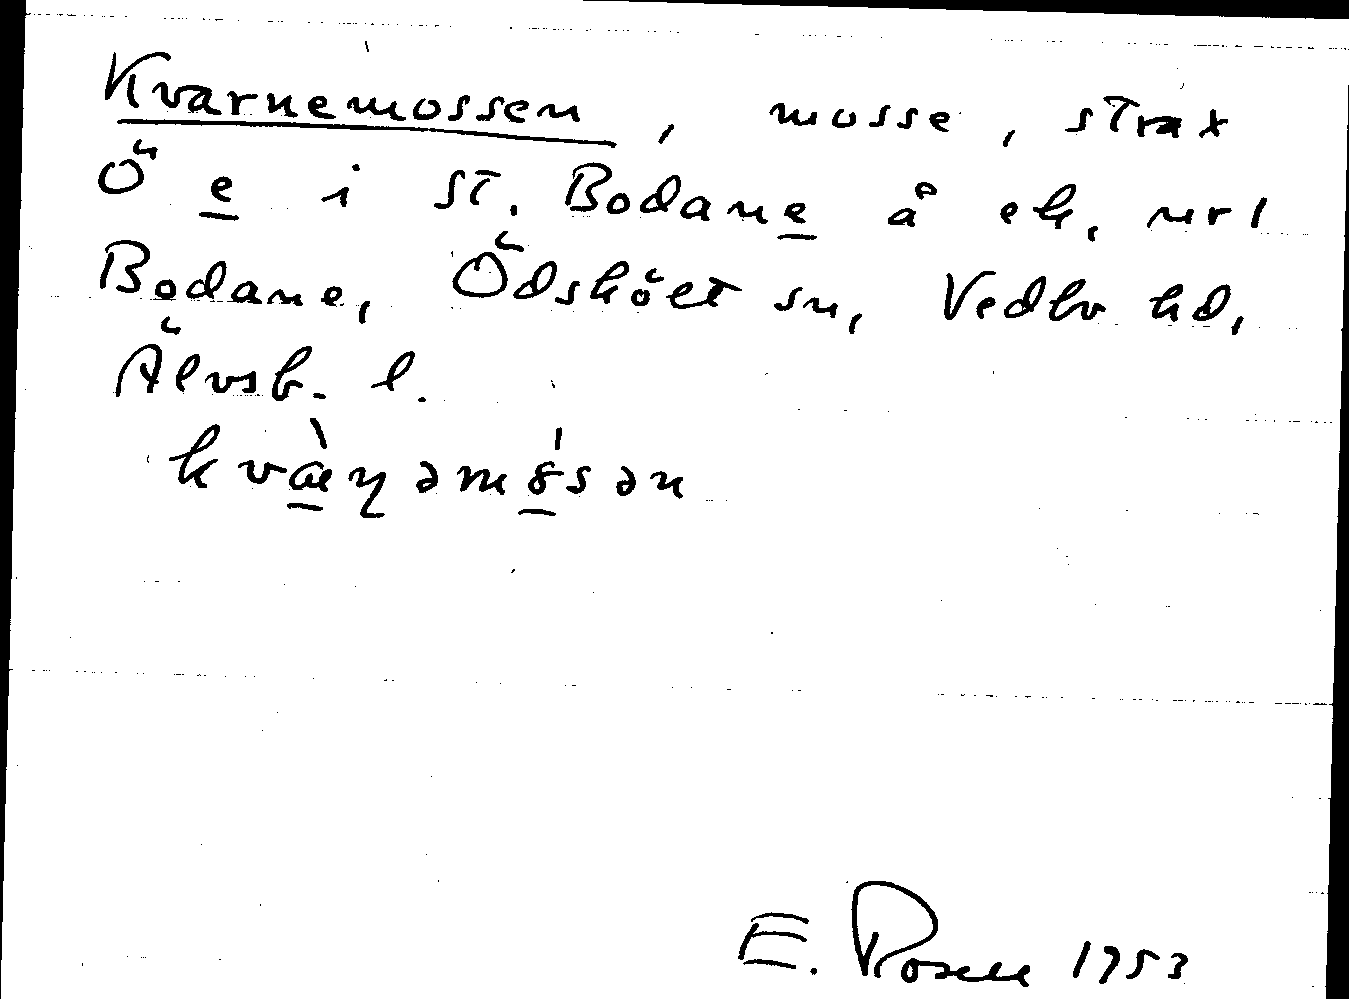 Kvarnemossen, mosse, strax
Ö e i St. Bodane å ek,
Bodane, Ödskölt sn, Vedbo hd,
Älvsb. l.
kvæ̀ɳəmósən
E. Rosell 1953